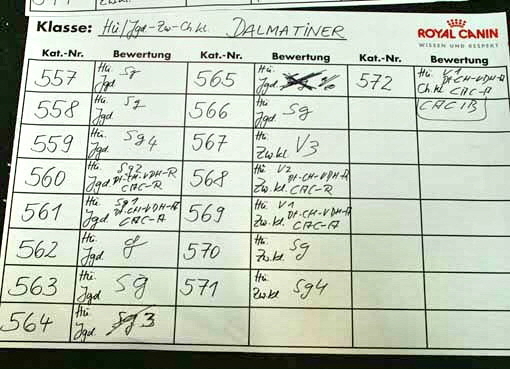 Klasse: Hü/Jgd-Zw-Ch.kl. DALMATINER
ROYAL CANIN
WISSEN UND RESPEKT
Kat.-Nr. Bewertung Kat.-Nr. Bewertung Kat.-Nr. Bewertung
557 Hü. Jgd. Sg 565 Hü. Jgd. 572 Hü. V1 Dt-CH-VDH-A Ch.kl. CAC-A
558 Hü. Jgd. Sg 566 Hü. Jgd. Sg CACIB
559 Hü. Jgd. Sg4 567 Hü. Zw.kl. V3
560 Hü. Sg2 Dt-CH-VDH-R Jgd. CAC-R 568 Hü. V2 Dt-CH-VDH-R Zw.kl. CAC-R
561 Hü. Sg1 Dt-CH-VDH-A Jgd. CAC-A 569 Hü. V1 Dt-CH-VDH-A Zw.kl. CAC-A
562 Hü. Jgd. g 570 Hü. Zw.kl. Sg
563 Hü. Jgd. Sg 571 Hü. Zw.kl. Sg4
564 Hü. Jgd. Sg3